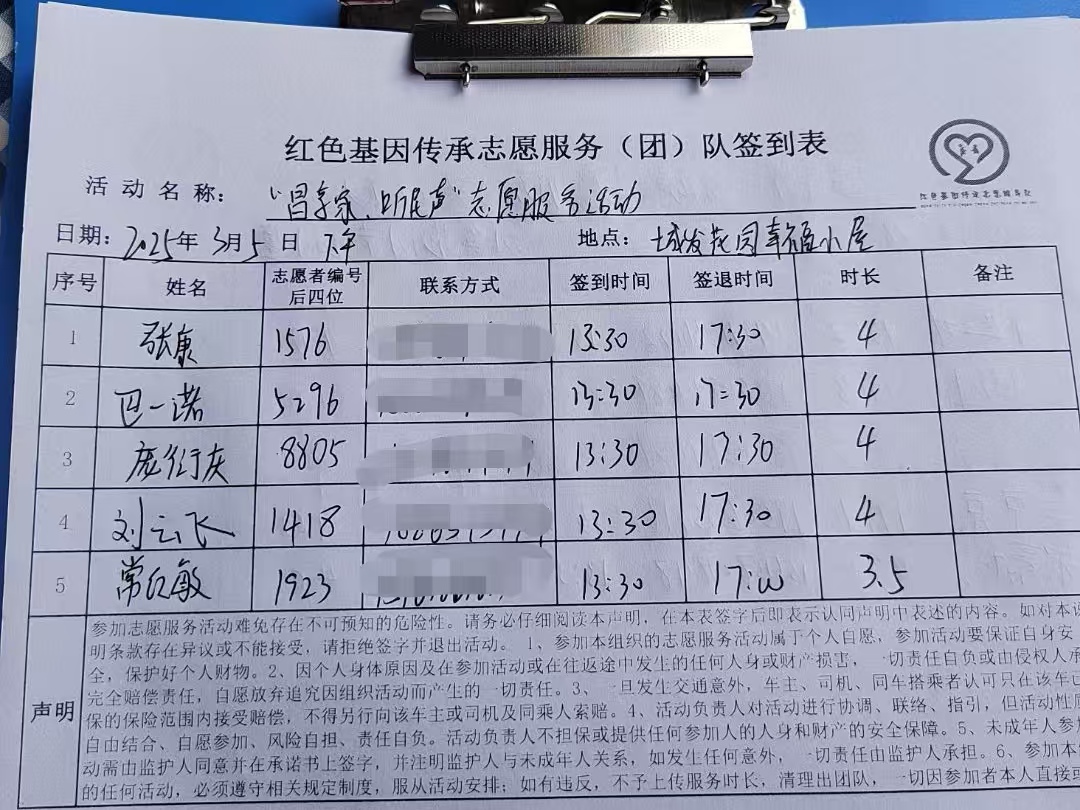 红色基因传承志愿服务（团）队签到表
活动名称： “昌享家、听民声”志愿服务活动
日期：2025年3月5日 下午 地点：城发花园幸福小屋
序号 姓名 志愿者编号后四位 联系方式 签到时间 签退时间 时长 备注
1 张康 1576 13:30 17:30 4
2 巴一诺 5296 13:30 17:30 4
3 庞行灰 8805 13:30 17:30 4
4 刘云飞 1418 13:30 17:30 4
5 常红敏 1923 13:30 17:00 3.5
声明
参加志愿服务活动难免存在不可预知的危险性。请务必仔细阅读本声明，在本表签字后即表示认同声明中表述的内容。如对本
明条款存在异议或不能接受，请拒绝签字并退出活动。1、参加本组织的志愿服务活动属于个人自愿，参加活动要保证自身安
全，保护好个人财物。2、因个人身体原因及在参加活动或在往返途中发生的任何人身或财产损害，一切责任自负或由侵权人承
完全赔偿责任，自愿放弃追究因组织活动而产生的一切责任。3、一旦发生交通意外，车主、司机、同车搭乘者认可只在该车已
保的保险范围内接受赔偿，不得另行向该车主或司机及同乘人索赔。4、活动负责人对活动进行协调、联络、指引，但活动性质
自由结合、自愿参加、风险自担、责任自负。活动负责人不担保或提供任何参加人的人身和财产的安全保障。5、未成年人参
动需由监护人同意并在承诺书上签字，并注明监护人与未成年人关系，如发生任何意外，一切责任由监护人承担。6、参加本
的任何活动，必须遵守相关规定制度，服从活动安排；如有违反，不予上传服务时长，清理出团队，一切因参加者本人直接或